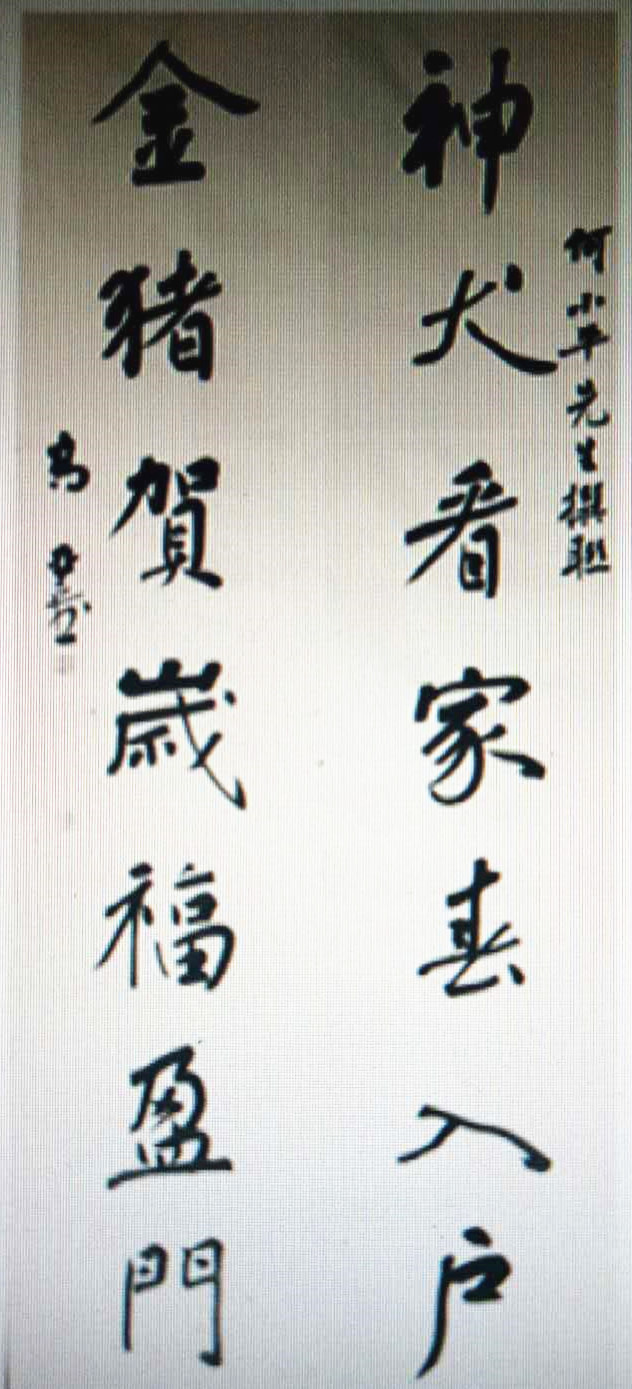 何小平先生撰聯
神犬看家春入户
金猪賀嵗福盈門
高